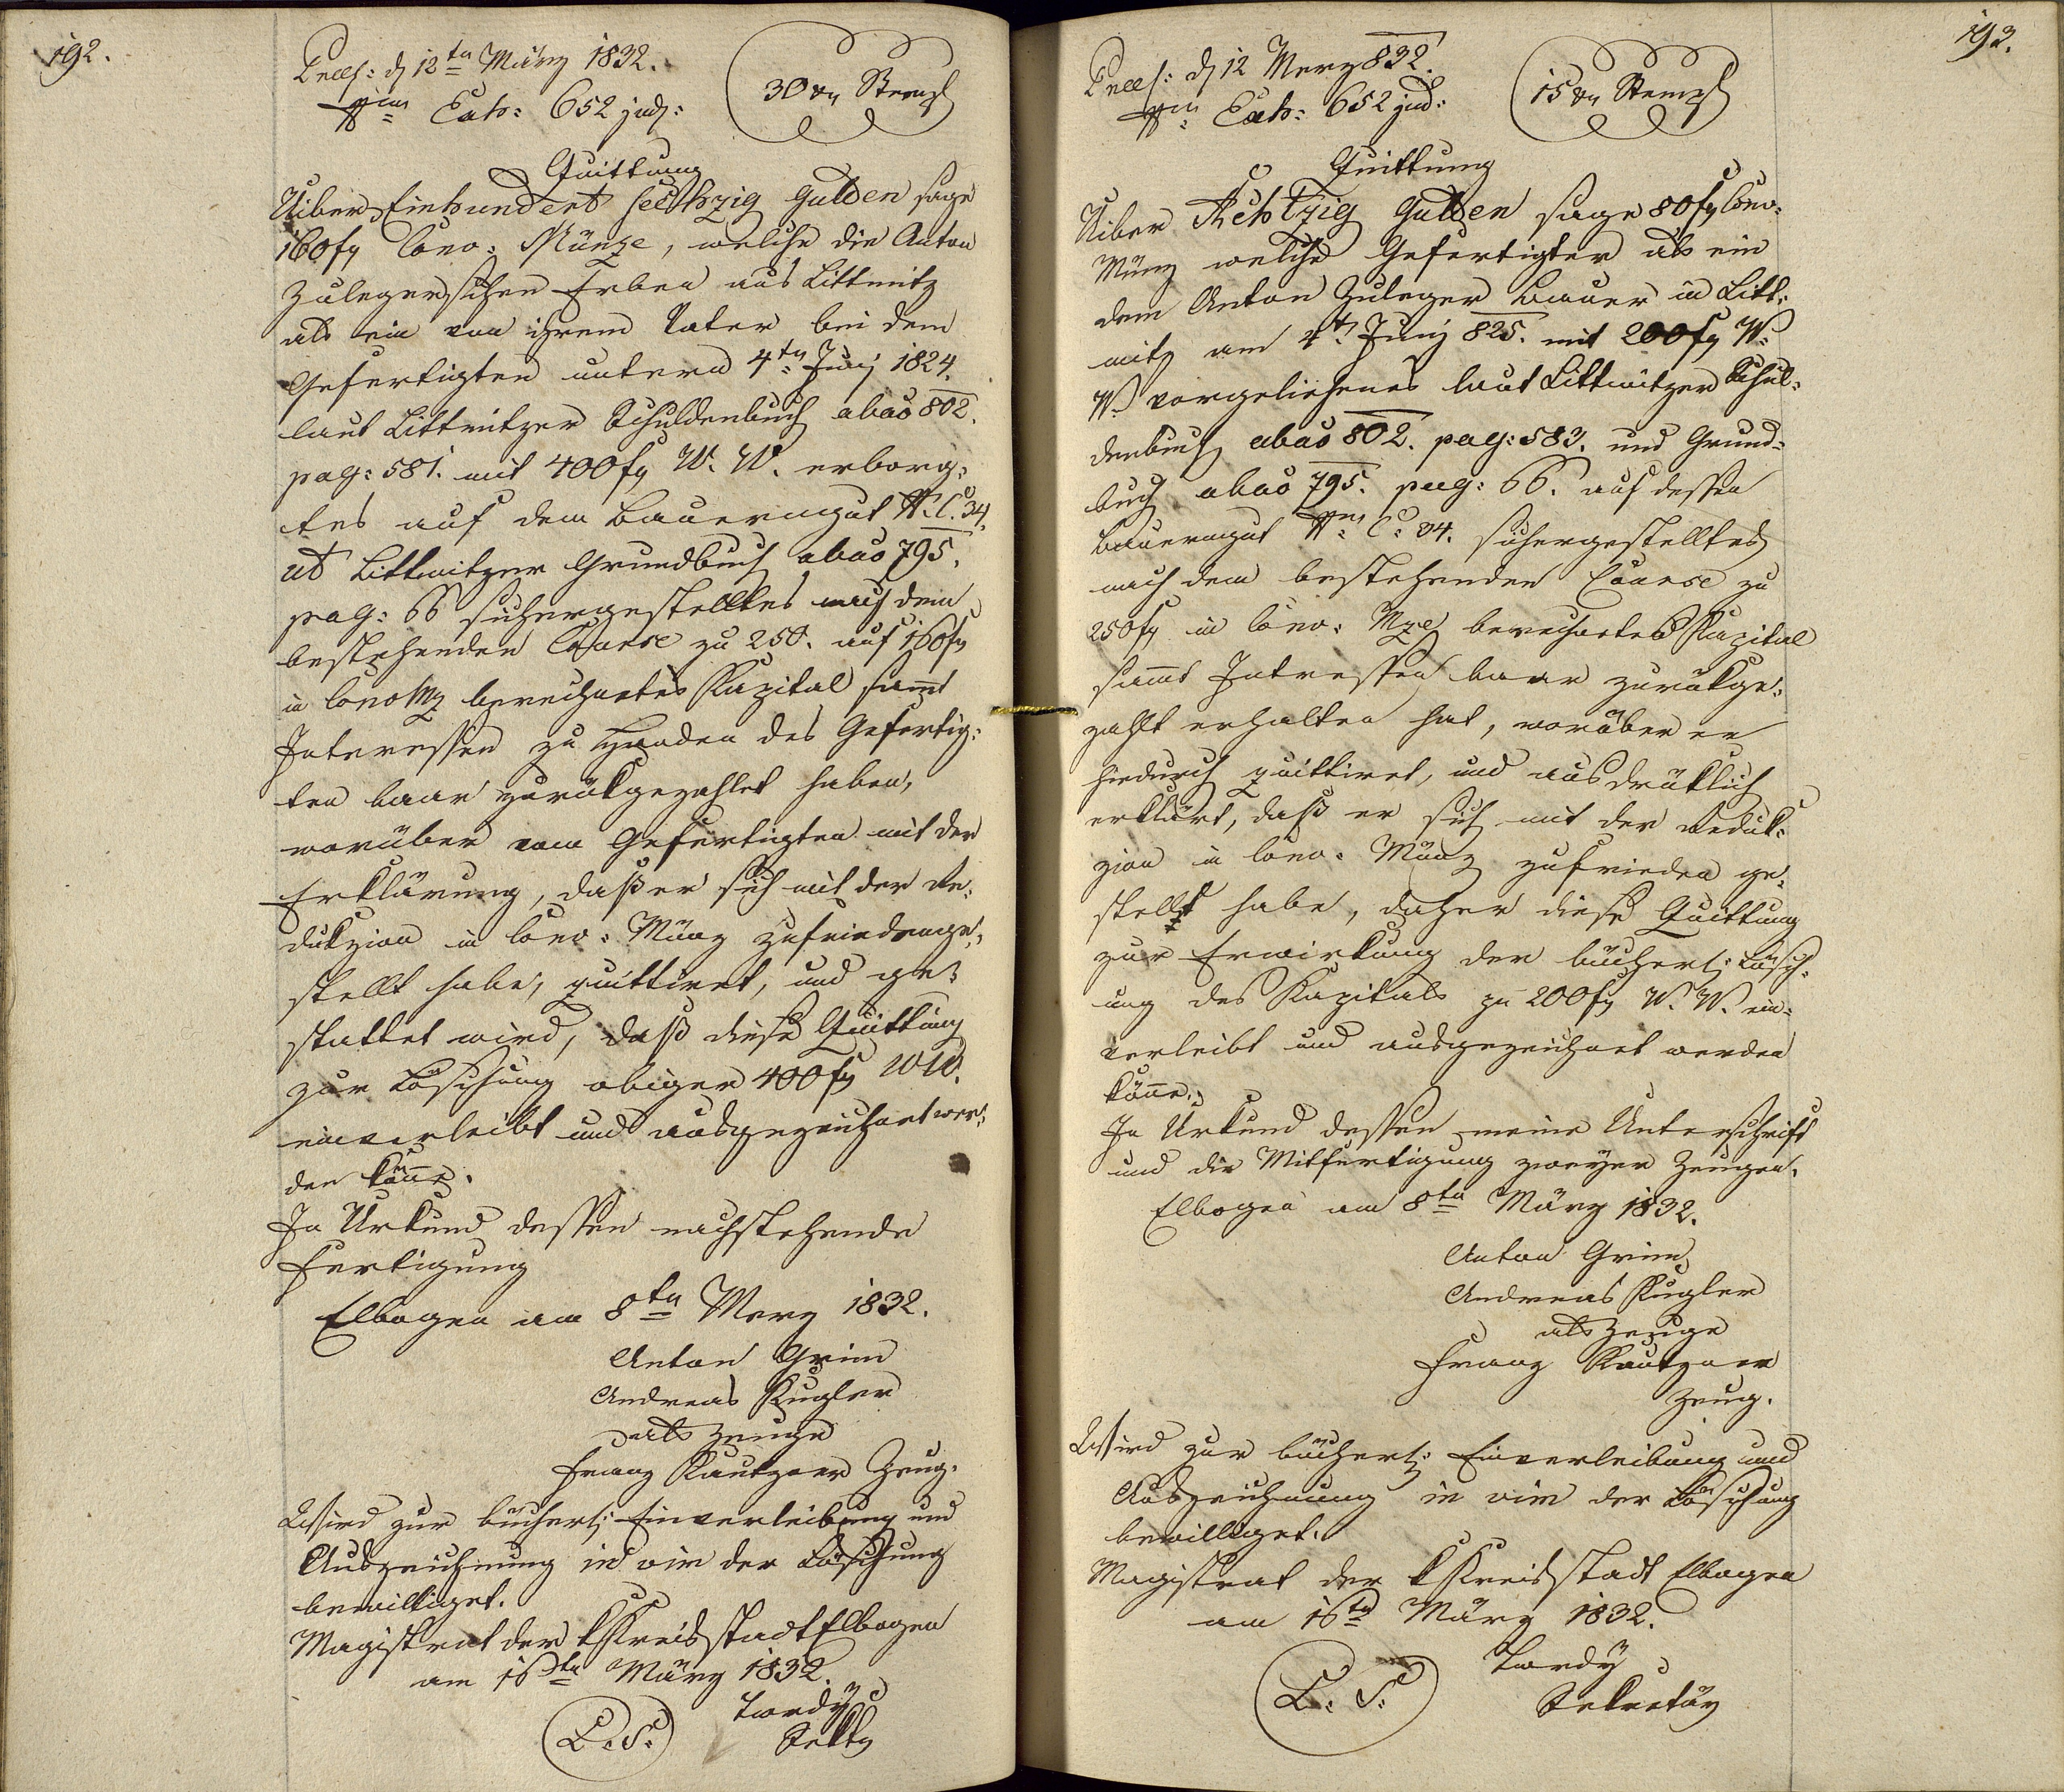 192.
Praes: d 12ten März 1832.
Nrm Exh: 652 jud:
30 xr Stempl
Quittung
Uiber Einhundert sechzig Gulden sage
160 fr Conv: Münze, welche die Anton
Zulegerischen Erben aus Littmitz
als ein von ihrem Vater bei dem
Gefertigten unterm 4ten Juny 1824.
laut Littmitzer Schuldenbuch abao 802.
pag: 581. mit 400 fr W. W. erborg:
tes auf dem Bauerngut N. C. 34.
ut Littmitzer Grundbuch abao 795.
pag: 66 sichergestelltes nach dem
bestehenden Course zu 250. auf 160 fr
in ConvMz berechnetes Kapital samt
Interessen zu Handen des Gefertig:
ten baar zurükgezahlet haben,
worüber vom Gefertigten mit der
Erklärung, daß er sich mit der Re:
dukzion in Conv: Münz zufriedenge:
stellt habe, quittiret, und ge:
stattet wird, daß diese Quittung
zur Löschung obiger 400 fr W W.
einverleibt und ausgezeichnet wer:
den könne.
In Urkund dessen nachstehende
Fertigung
Elbogen am 8ten Merz 1832.
Anton Grim
Andreas Kugler
als Zeuge
Franz Kautzner Zeug.
Wird zur bücherl: Einverleibung und
Auszeichnung in vim der Löschung
bewilliget.
Magistrat der k Kreisstadt Elbogen
am 16ten März 1832.
L. S.
Tardy
Sektr
193.
Praes: d 12 Merz 832.
Nrm Exh: 652 jud:
15 xr Stempl
Quittung
Uiber Achtzig Gulden sage 80 fr Conv:
Münz welche Gefertigter als ein
dem Anton Zuleger Bauer in Litt:
mitz am 4t Juny 825. mit 200 fr W.
W. vorgeliehenes laut Littmitzer Schul:
denbuch abao 802. pag: 583. und Grund:
buch abao 795. pag: 66. auf dessen
Bauerngut Nr C: 34. sichergestelltes
nach dem bestehenden Course zu
250 fr in Conv: Mze berechnetes Kapital
samt Interessen baar zurükge:
zahlt erhalten hat, worüber er
hiedurch quittiret, und ausdrüklich
erklärt, daß er sich mit der Reduk:
zion in Conv: Münz zufrieden ge:
stellt habe, daher diese Quittung
zur Erwirkung der bücherl: Lösch:
ung des Kapitals zu 200 fr W. W. ein:
verleibt und ausgezeichnet werden
könne.
In Urkund dessen meine Unterschrift
und die Mitfertigung zweyer Zeugen.
Elbogen am 8ten März 1832.
Anton Grim
Andreas Kugler
als Zeuge
Franz Kautzner
Zeug.
Wird zur bücherl: Einverleibung und
Auszeichnung in vim der Löschung
bewilliget.
Magistrat der k Kreisstadt Elbogen
am 16ten März 1832.
L. S.
Tardy
Sekretär